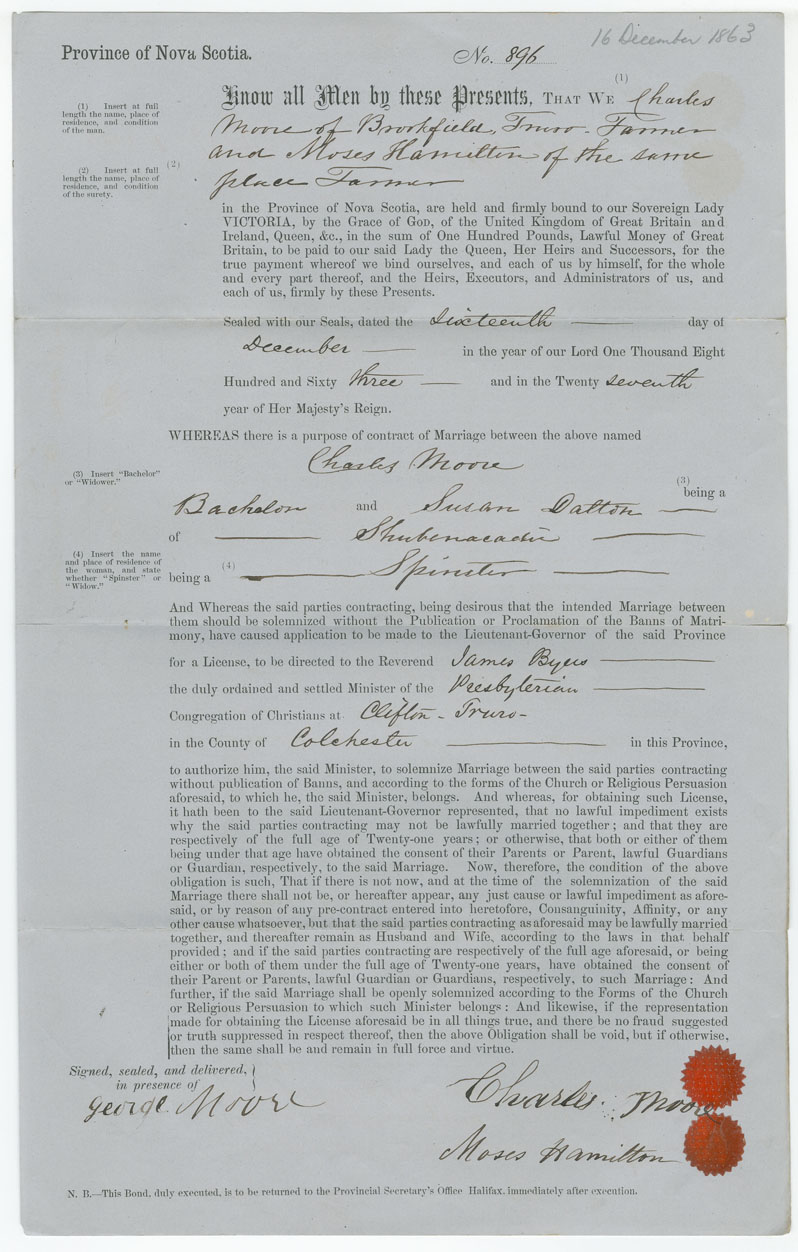 16 December 1863
Province of Nova Scotia.
No. 896
Know all Men by these Presents, THAT WE (1) Charles
Moore of Brookfield, Truro - Farmer
and Moses Hamilton of the same
place Farmer
(1) Insert at full
length the name, place of
residence, and condition
of the man.
(2)
(2) Insert at full
length the name, place of
residence, and condition
of the surety.
in the Province of Nova Scotia, are held and firmly bound to our Sovereign Lady
VICTORIA, by the Grace of GOD, of the United Kingdom of Great Britain and
Ireland, Queen, &c., in the sum of One Hundred Pounds, Lawful Money of Great
Britain, to be paid to our said Lady the Queen, Her Heirs and Successors, for the
true payment whereof we bind ourselves, and each of us by himself, for the whole
and every part thereof, and the Heirs, Executors, and Administrators of us, and
each of us, firmly by these Presents.
Sealed with our Seals, dated the Sixteenth — day of
December — in the year of our Lord One Thousand Eight
Hundred and Sixty three — and in the Twenty seventh
year of Her Majesty's Reign.
WHEREAS there is a purpose of contract of Marriage between the above named
Charles Moore
(3) Insert "Bachelor"
or "Widower."
(3)
being a
Bachelor and Susan Dalton —
of — Shubenacadie —
(4) Insert the name
and place of residence of
the woman, and state
whether "Spinster" or
"Widow."
being a (4) — Spinster —
And Whereas the said parties contracting, being desirous that the intended Marriage between
them should be solemnized without the Publication or Proclamation of the Banns of Matri-
mony, have caused application to be made to the Lieutenant-Governor of the said Province
for a License, to be directed to the Reverend James Byers —
the duly ordained and settled Minister of the Presbyterian —
Congregation of Christians at Clifton - Truro -
in the County of Colchester — in this Province,
to authorize him, the said Minister, to solemnize Marriage between the said parties contracting
without publication of Banns, and according to the forms of the Church or Religious Persuasion
aforesaid, to which he, the said Minister, belongs. And whereas, for obtaining such License,
it hath been to the said Lieutenant-Governor represented, that no lawful impediment exists
why the said parties contracting may not be lawfully married together; and that they are
respectively of the full age of Twenty-one years; or otherwise, that both or either of them
being under that age have obtained the consent of their Parents or Parent, lawful Guardians
or Guardian, respectively, to the said Marriage. Now, therefore, the condition of the above
obligation is such, That if there is not now, and at the time of the solemnization of the said
Marriage there shall not be, or hereafter appear, any just cause or lawful impediment as afore-
said, or by reason of any pre-contract entered into heretofore, Consanguinity, Affinity, or any
other cause whatsoever, but that the said parties contracting as aforesaid may be lawfully married
together, and thereafter remain as Husband and Wife, according to the laws in that behalf
provided; and if the said parties contracting are respectively of the full age aforesaid, or being
either or both of them under the full age of Twenty-one years, have obtained the consent of
their Parent or Parents, lawful Guardian or Guardians, respectively, to such Marriage: And
further, if the said Marriage shall be openly solemnized according to the Forms of the Church
or Religious Persuasion to which such Minister belongs: And likewise, if the representation
made for obtaining the License aforesaid be in all things true, and there be no fraud suggested
or truth suppressed in respect thereof, then the above Obligation shall be void, but if otherwise,
then the same shall be and remain in full force and virtue.
Signed, sealed, and delivered,
in presence of
george Moore
Charles Moore
Moses Hamilton
N. B.—This Bond, duly executed, is to be returned to the Provincial Secretary's Office Halifax, immediately after execution.